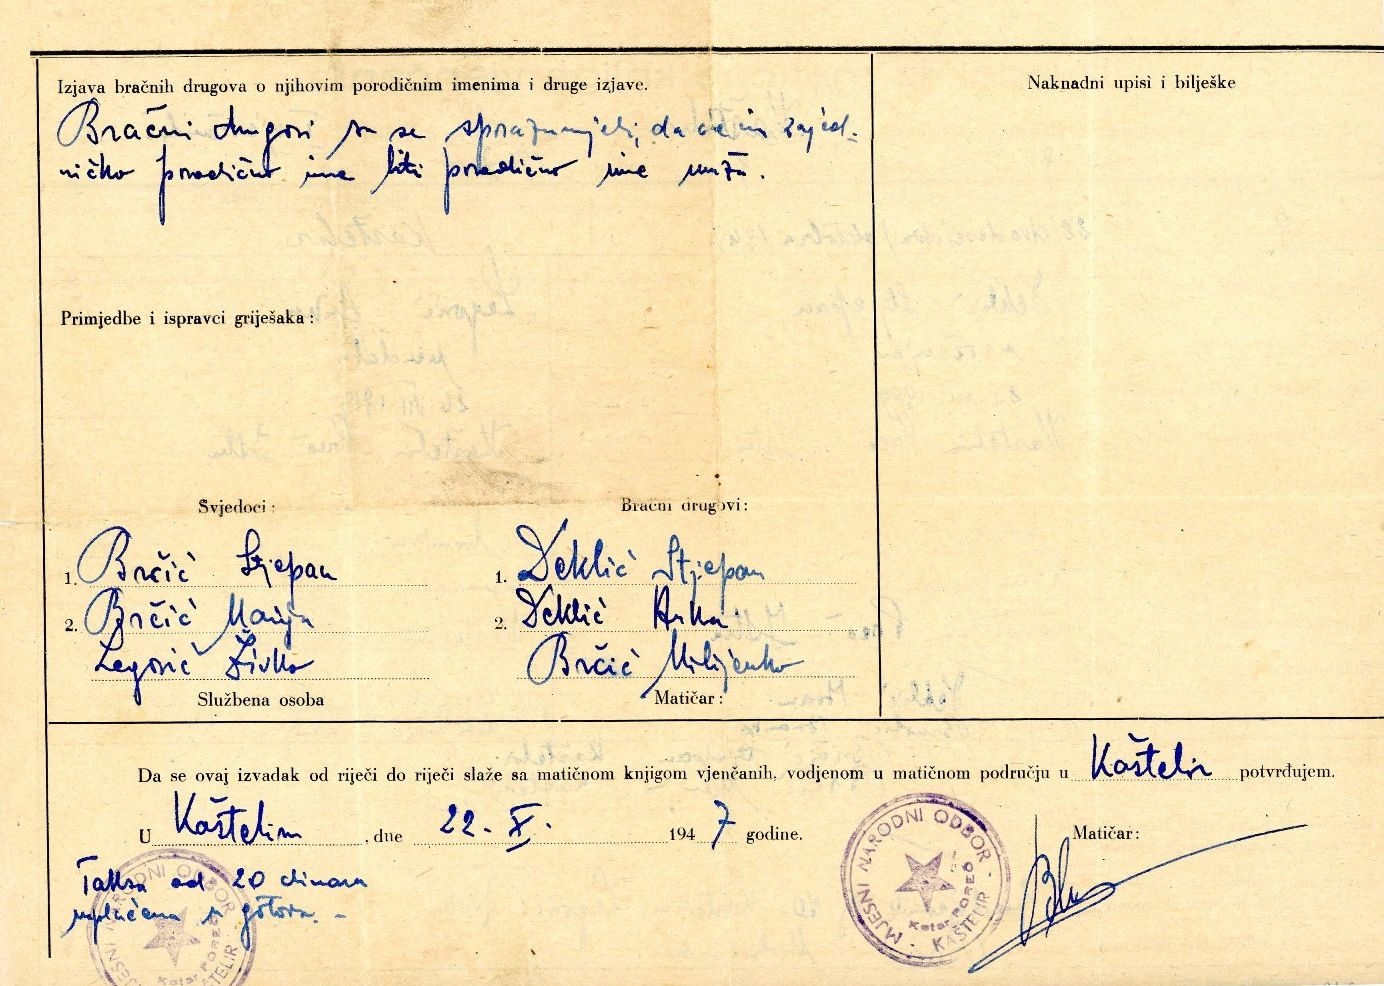 Izjava bračnih drugova o njihovim porodičnim imenima i druge izjave.
Bračni drugovi su se sporazumjeli, da će im zajed-
ničko porodično ime biti porodično ime muža.
Primjedbe i ispravci griješaka:
Svjedoci:
1. Brčić Stjepan
2. Brčić Marija
Legović Živko
Službena osoba
Bračni drugovi:
1. Deklić Stjepan
2. Deklić Anka
Brčić Milijenko
Matičar:
Naknadni upisi i bilješke
Da se ovaj izvadak od riječi do riječi slaže sa matičnom knjigom vjenčanih, vodjenom u matičnom području u Kaštelir potvrđujem.
U Kašteliru, dne 22. X. 1947 godine.
Taksa od 20 dinara
uplaćena u gotovu. -
MJESNI NARODNI ODBOR
Kotar POREČ
KAŠTELIR
Matičar:
MJESNI NARODNI ODBOR - KAŠTELIR -
Kotar POREČ